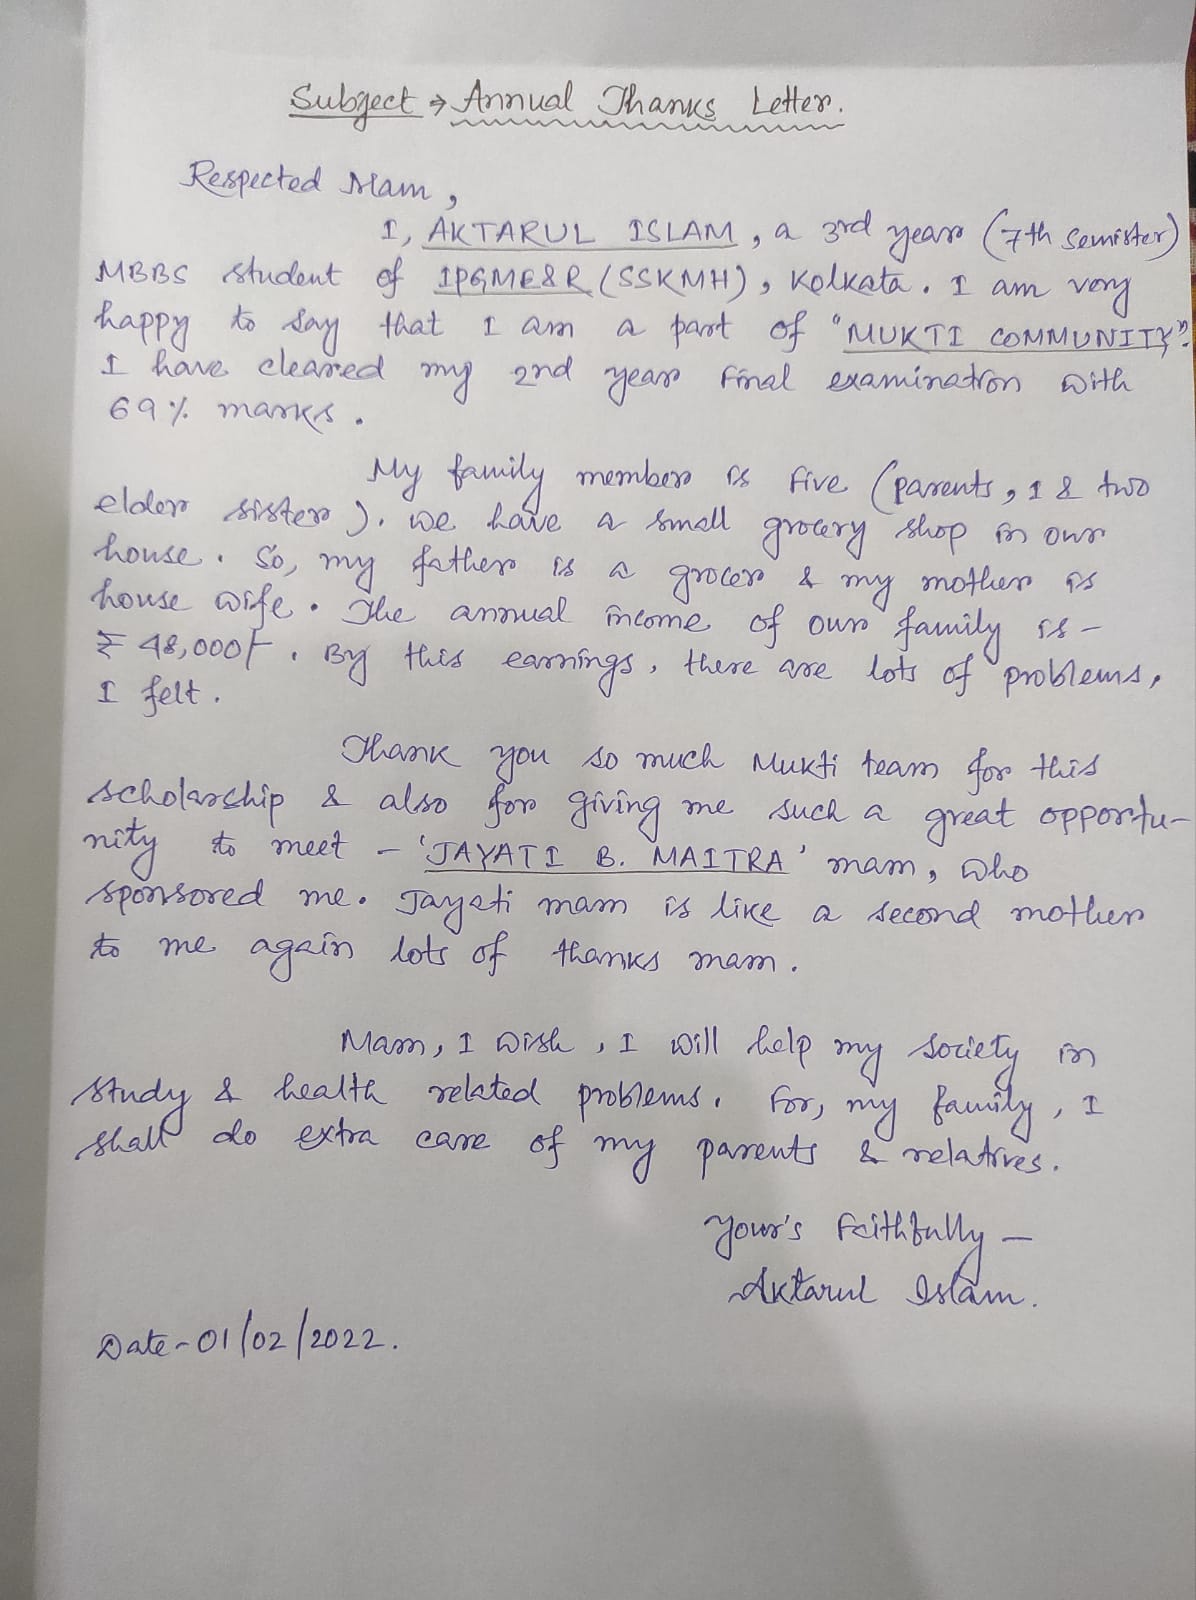 Subject → Annual Thanks Letter.
Respected Mam,
I, AKTARUL ISLAM, a 3rd year (7th Semister)
MBBS student of IPGME&R (SSKMH), Kolkata. I am very
happy to say that I am a part of "MUKTI COMMUNITY".
I have cleared my 2nd year final examination with
69% marks.
My family member is five (parents, I & two
elder sister). We have a small grocery shop in our
house. So, my father is a grocer & my mother is
house wife. The annual income of our family is -
₹ 48,000/-. By this earnings, there are lots of problems,
I felt.
Thank you so much Mukti team for this
scholarship & also for giving me such a great opportu-
nity to meet - 'JAYATI B. MAITRA' mam, who
sponsored me. Jayati mam is like a second mother
to me again lots of thanks mam.
Mam, I wish, I will help my society in
study & health related problems. For, my family, I
shall do extra care of my parents & relatives.
Your's Faithfully -
Aktarul Islam.
Date-01/02/2022.